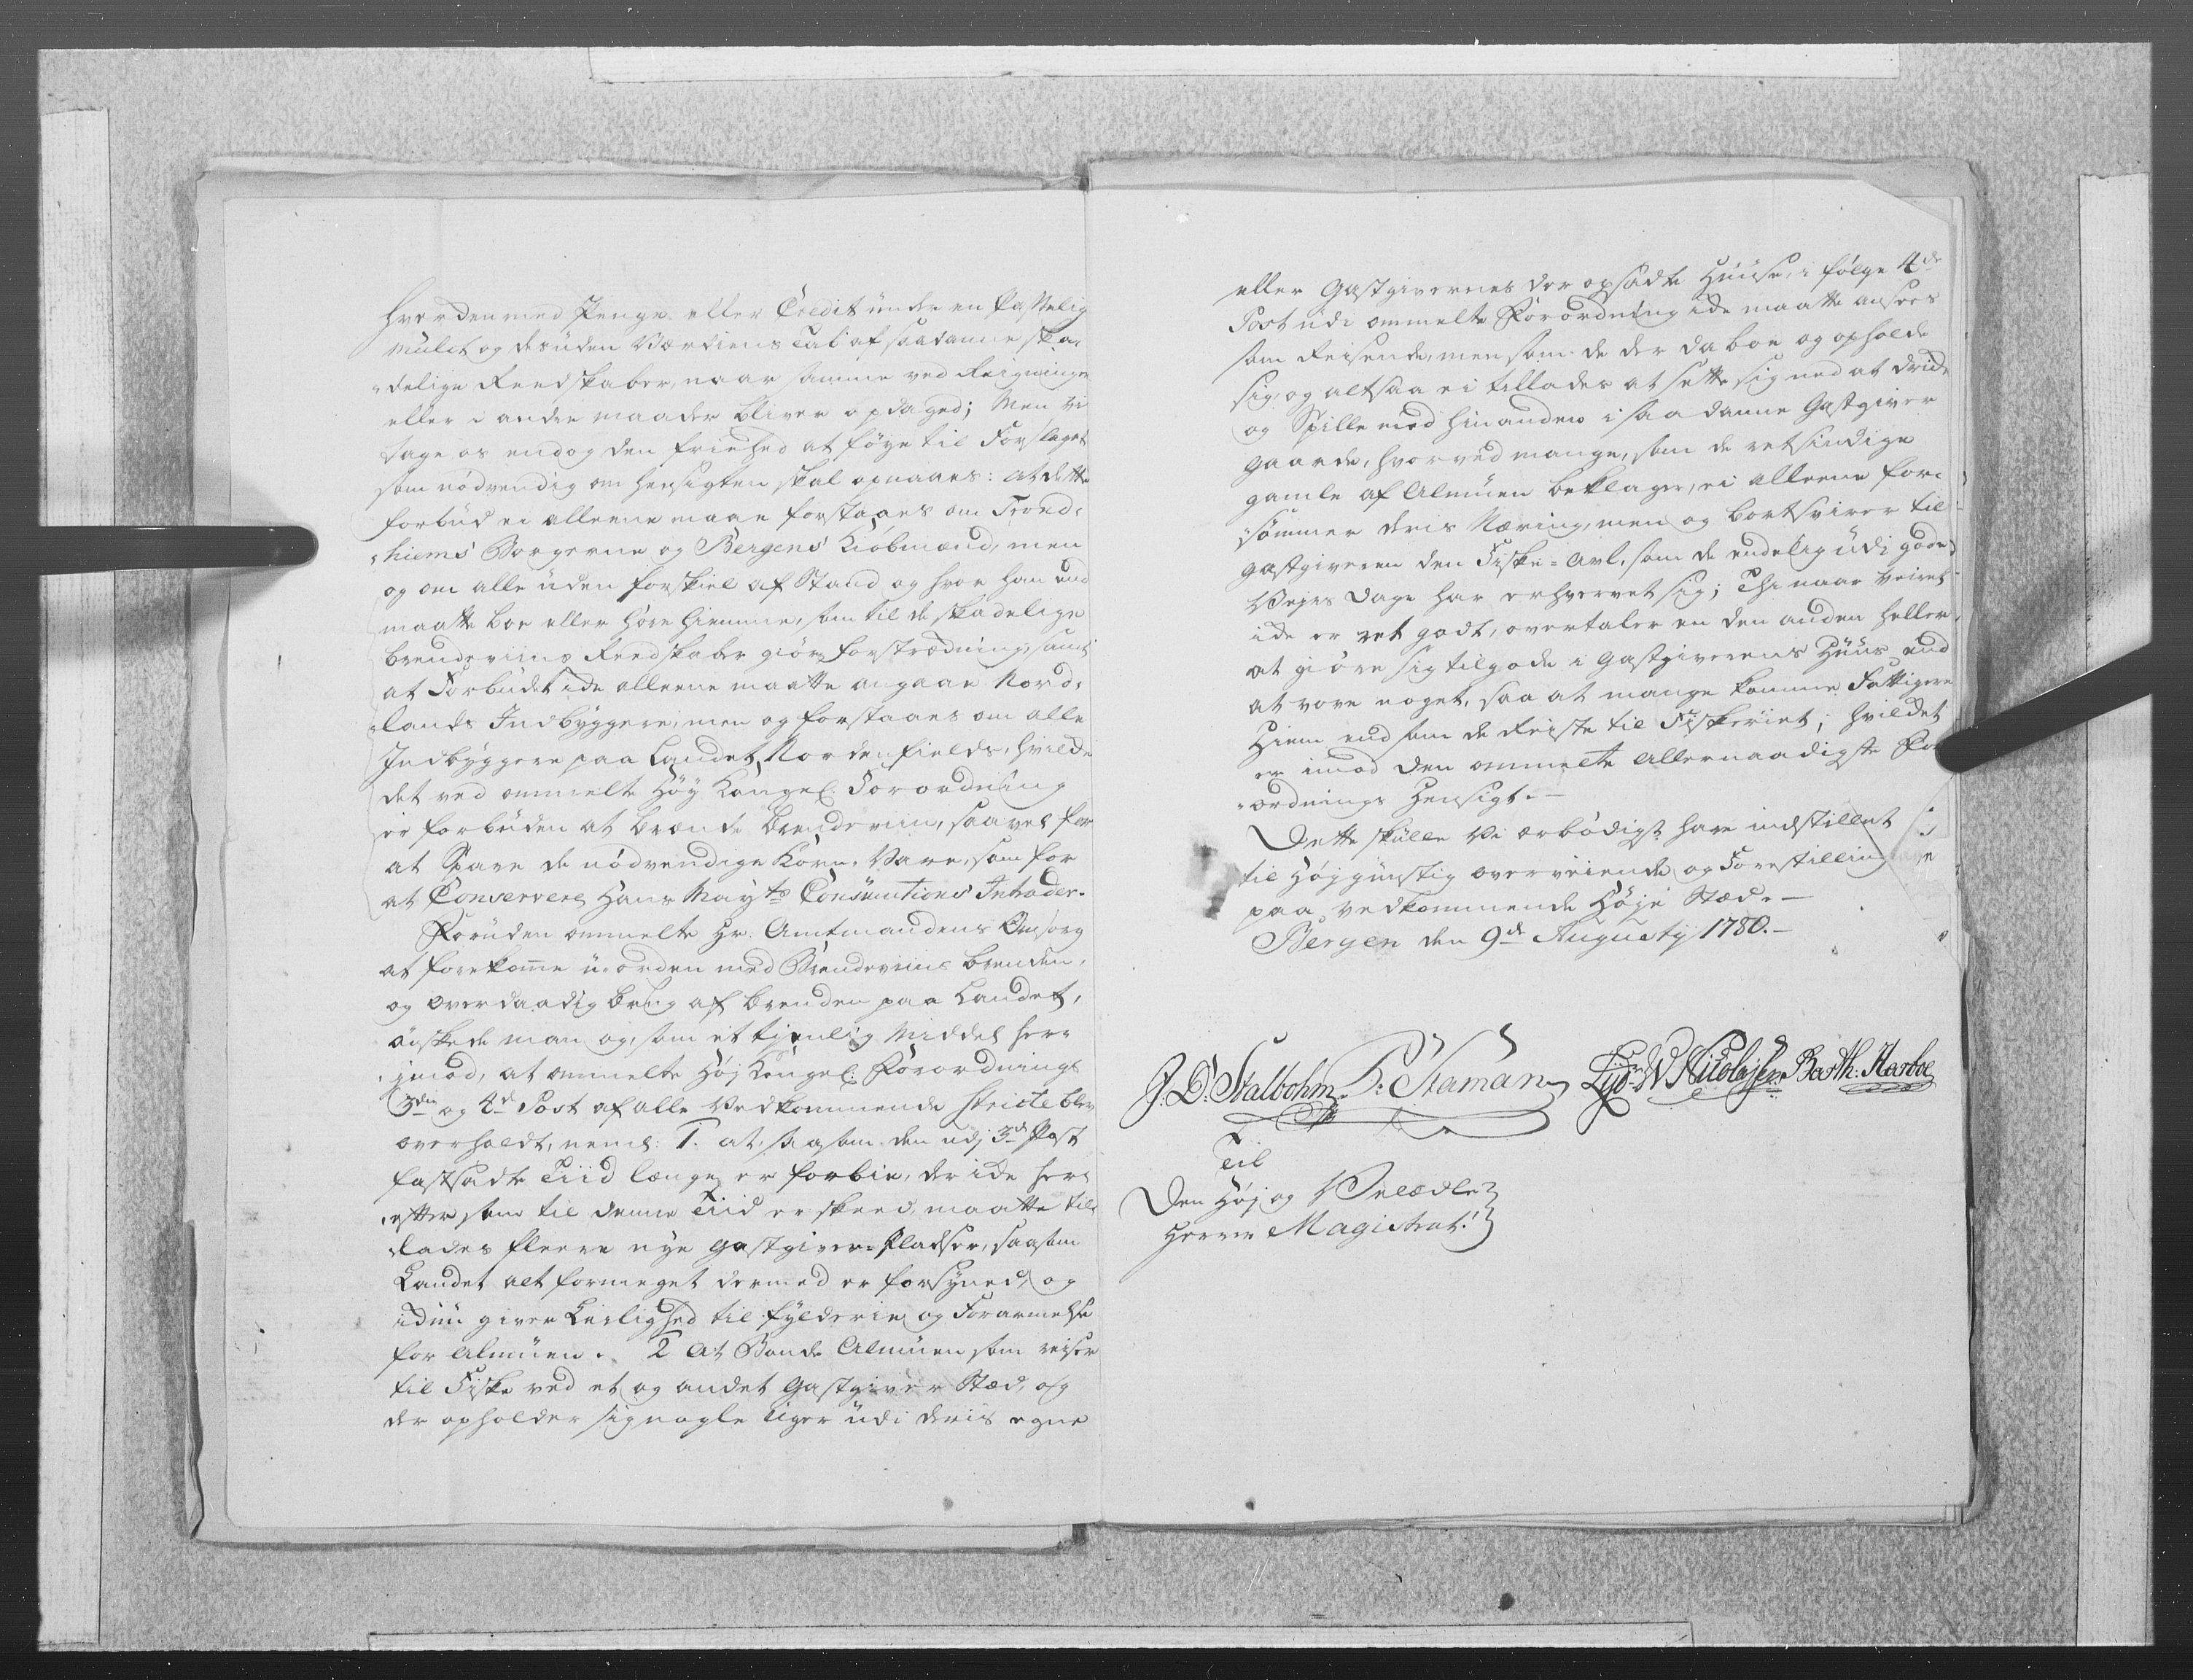 hverden med Penge eller Credit under en Passelig
Mulct og desuden Værdiens Tab af saadanne ska-
delige Reedskaber, naar samme ved Reigninger
eller i andre maader bliver opdaget; Men vi
tage os endog den friehed at føye til Forslaget
som nødvendig om hensigten skal opnaaes: at dette
forbud ei alleene maae forstaaes om Trond-
hiems Borgerne og Bergens Kiøbmænd, men
og om alle uden forskiel af Stand og hvor han end
maatte boe eller høre hiemme, som til de skadelige
brendeviins Reedskaber giør forstrædning, samt
at Forbudet icke alleene maatte angaae Nord-
lands Indbyggere, men og forstaaes om alle
Indbyggere paa Landet Nordenfields, hvilcke
det ved ommelte Høy Kongel: Forordning
er forbuden at brænde brendeviin, saavel for
at Spare de nødvendige Korn-Vare, som for
at Conservere Hans Mayts Consumtions Intrader.
Foruden ommelte Hr. Amtmandens Omsorg
at forekomme u-orden med Brendeviins brenden,
og overdaadig brug af brenden paa Landet,
ønskede man og, som et tjenlig Middel her-
imod, at ommelte Høj Kongel: Forordnings
3die og 4de Post af alle Vedkommende stricte blev
overholdt, neml: 1. at saasom den udj 3de Post
fastsadte Tiid længe er forbie, der icke her-
efter som til denne Tiid er skeed, maatte til-
lades fleere nye Gastgiver-Pladser, saasom
Landet alt formeget dermed er forsynet, og
giver Leilighed til fylderie og Forarmelse
for Almuen. 2 At Bonde Almuen som reiser
til Fiske ved et og andet Gastgiver Stæd, og
der opholder sig nogle Uger udi deris egne
eller Gastgivernes der opsadte Huuse, i følge 4de
Post udi ommelte Forordning icke maatte ansees
som Reisende, men som de der da boe og opholde
sig, og altsaa ei tillades at sette sig ned at drick
og Spille med hinanden i saadanne Gastgiver
gaarde, hvorved mange, som de retsindige
gamle af Almuen beklager, ei alleene for-
sømmer deris Næring, men og bortsvirer til
Gastgiveren den Fiske-Avl, som de endelig udi gode
Vejrs Dage har erhvervet sig; Thi naar Veiret
icke er ret godt, overtaler en den anden heller
at giøre sig tilgode i Gastgiverens Huus, end
at vove noget, saa at mange komme Fattigere
Hiem end som de Reiste til Fiskeriet; hvilcket
er imod den ommelte Allernaadigste For
ordnings Hensigt.-
Dette skulle Vi ærbødigst have indstillet
til Højgunstig overveiende og Forestilling
paa vedkommende Høje Stæd.-
Bergen den 9de Augusty 1780.-
J. D. Stalbohm Staman Lyd. W Nicolajsen Barth: Harboe
Til
Den Høj og Velædle
Herrer Magistrat!